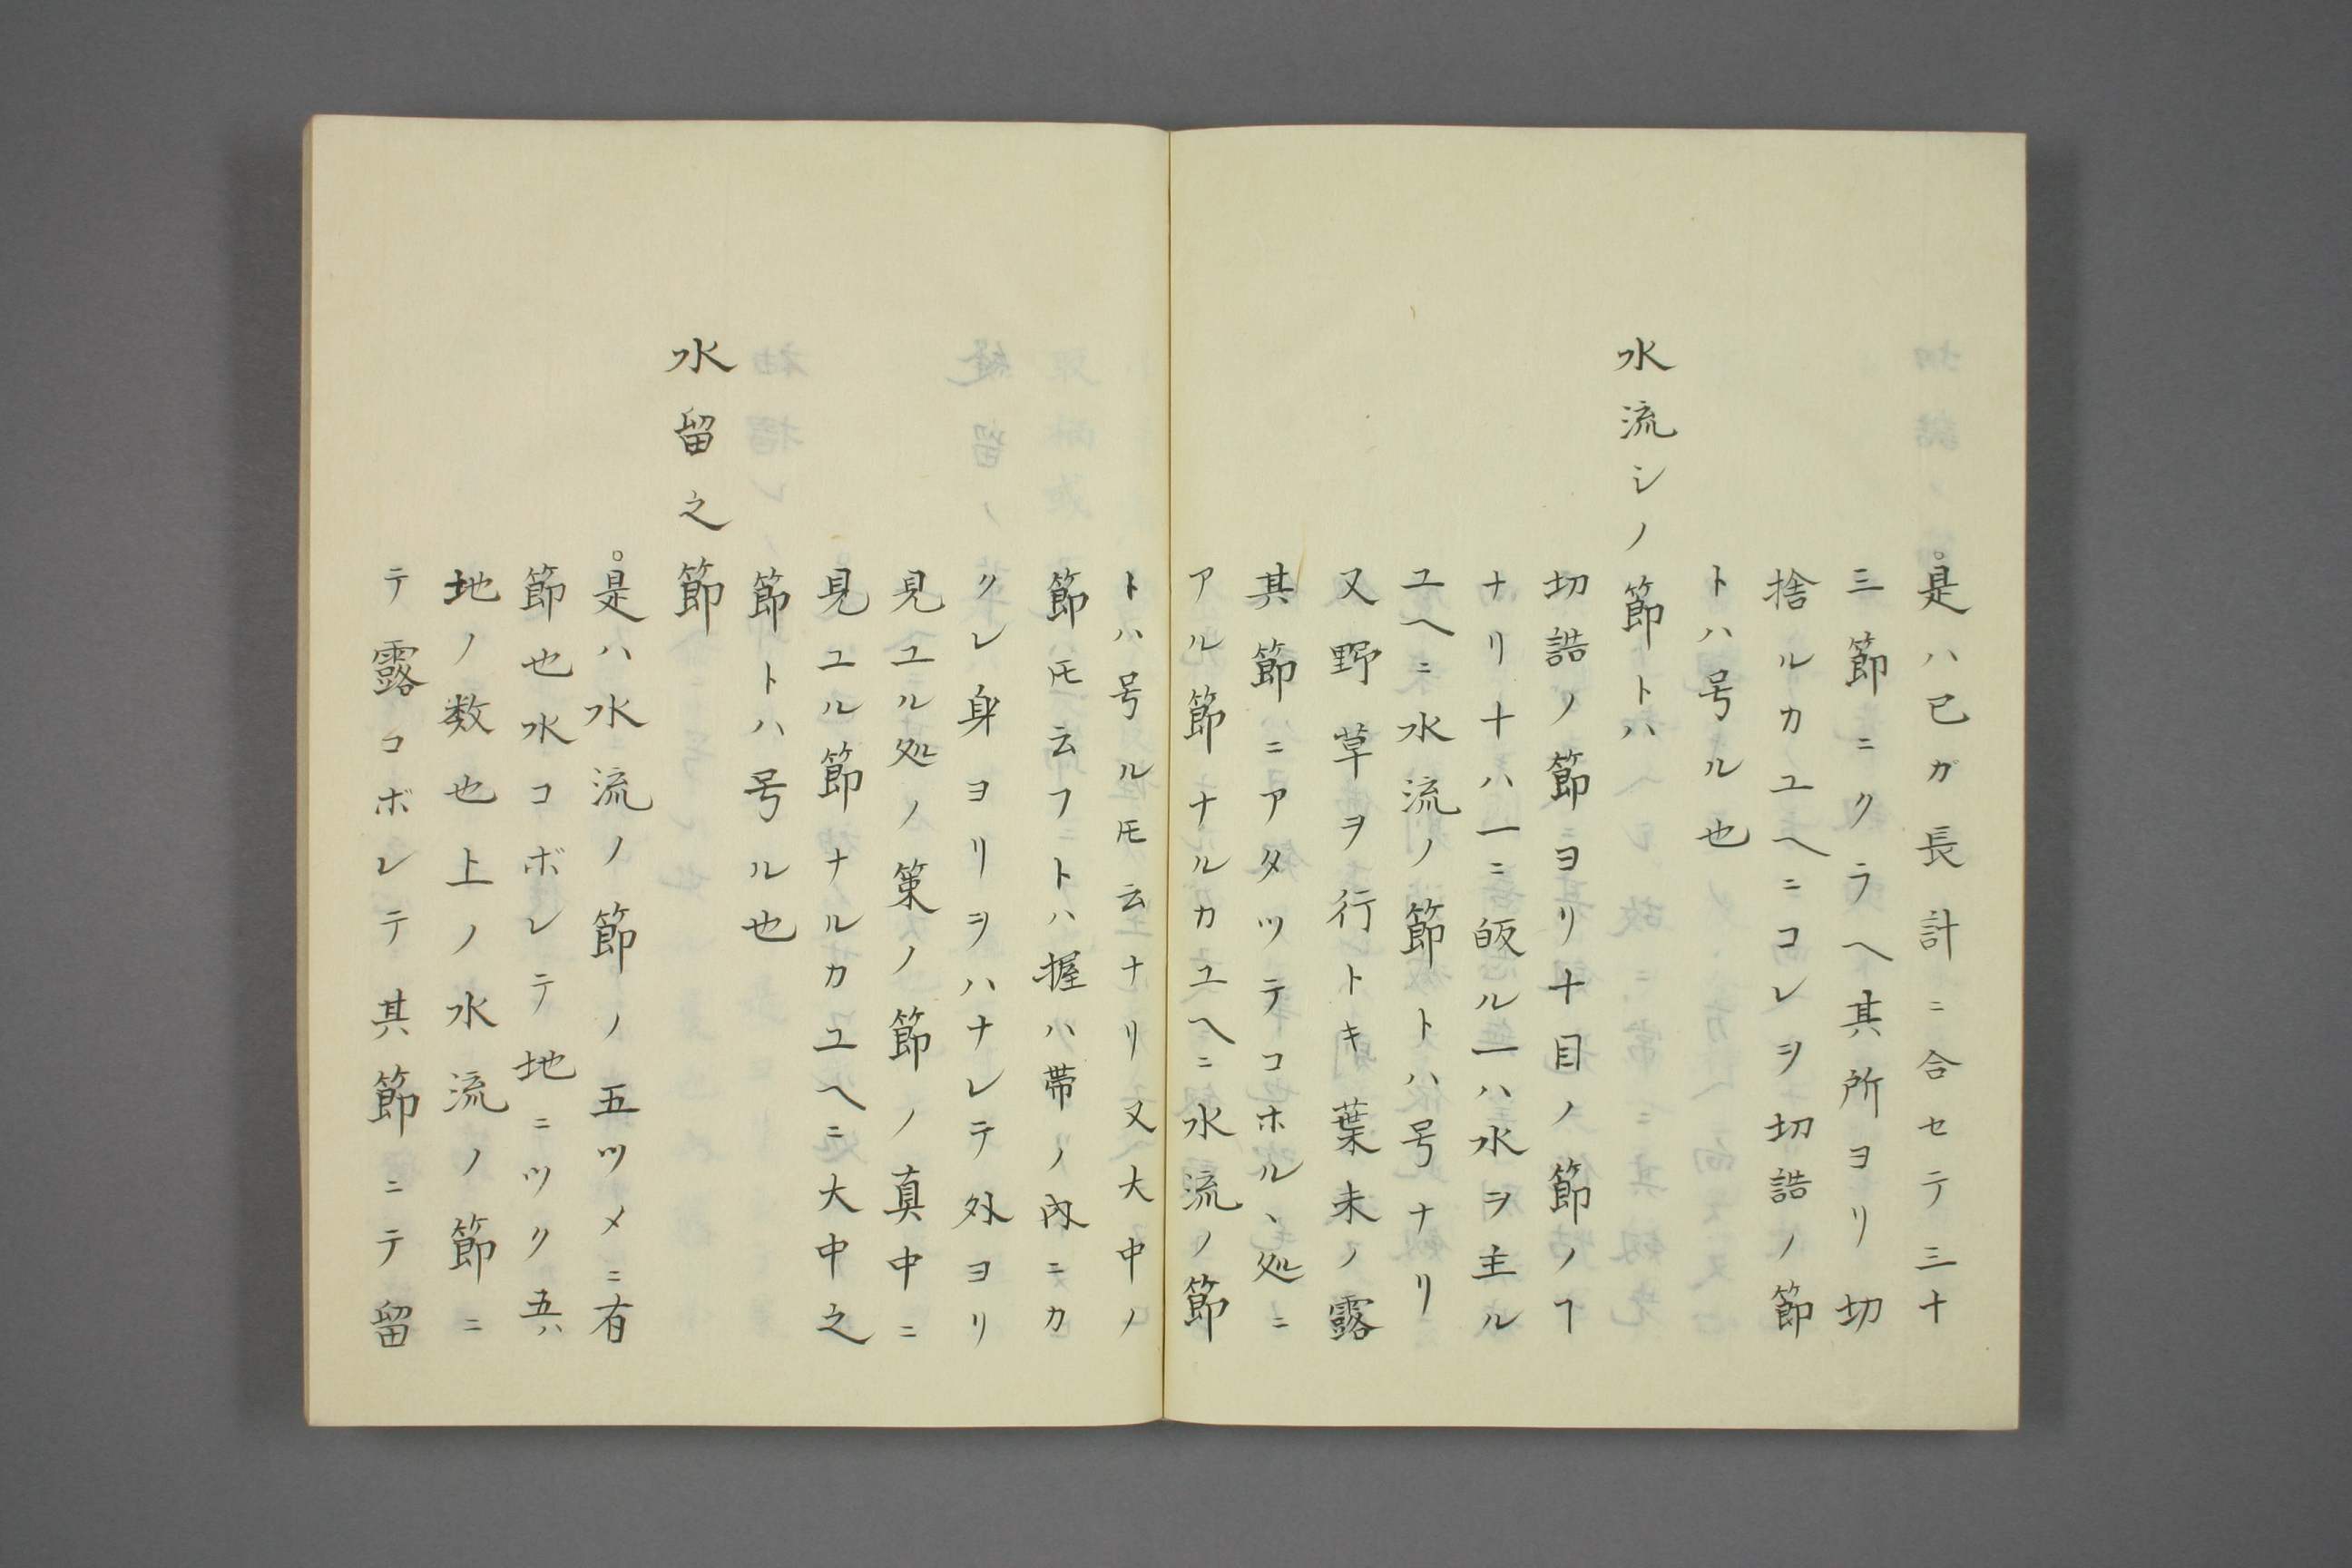 是ハ已ガ長計ニ合セテ三十
三節ニクラヘ其所ヨリ切
捨ルカユヘニコレヲ切誥ノ節
トハ号ル也
水流シノ節トハ
切誥ノ節ヨリ十目ノ節ノヿ
ナリ十ハ一ニ皈ル一ハ水ヲ主ル
ユヘニ水流ノ節トハ号ナリ
又野草ヲ行トキ葉末ノ露
其節ニアタツテコホルヽ処ニ
アル節ナルカユヘニ水流ノ節
トハ号ルモ云ナリ又大中ノ
節𪜈云フトハ握ハ帯ノ內ニカ
クレ身ヨリヲハナレテ外ヨリ
見ユル処ノ策ノ節ノ真中ニ
見ユル節ナルカユヘニ大中之
節トハ号ル也
水留之節
是ハ水流ノ節ノ五ツメニ有
節也水コボレテ地ニツク五ハ
地ノ数也上ノ水流ノ節ニ
テ露コボレテ其節ニテ留